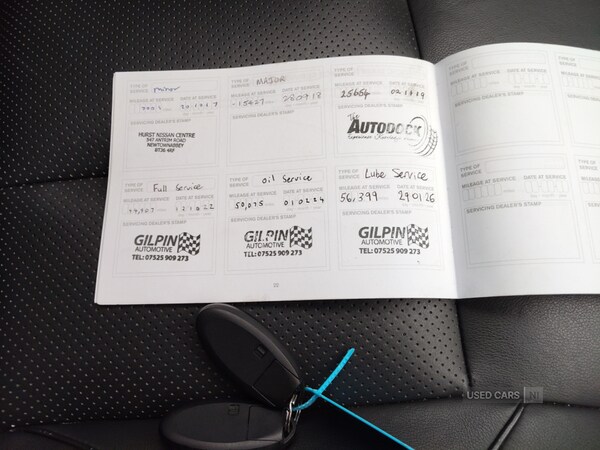 TYPE OF SERVICE minor
MILEAGE AT SERVICE DATE AT SERVICE
SERVICING DEALER'S STAMP
HURST NISSAN CENTRE
947 ANTRIM ROAD
NEWTOWNABBEY
BT36 4RF
TYPE OF SERVICE MAJOR
MILEAGE AT SERVICE DATE AT SERVICE
15027 280918
SERVICING DEALER'S STAMP
TYPE OF SERVICE
MILEAGE AT SERVICE DATE AT SERVICE
25654 021119
SERVICING DEALER'S STAMP
The
AUTODOCK
TYPE OF SERVICE
MILEAGE AT SERVICE DATE AT SERVICE
SERVICING DEALER'S STAMP
TYPE OF SERVICE Full Service
MILEAGE AT SERVICE DATE AT SERVICE
121022
SERVICING DEALER'S STAMP
GILPIN
AUTOMOTIVE
TEL: 07525 909 273
TYPE OF SERVICE Oil Service
MILEAGE AT SERVICE DATE AT SERVICE
50,075 010224
SERVICING DEALER'S STAMP
GILPIN
AUTOMOTIVE
TEL: 07525 909 273
TYPE OF SERVICE Lube Service
MILEAGE AT SERVICE DATE AT SERVICE
56,399 290126
SERVICING DEALER'S STAMP
GILPIN
AUTOMOTIVE
TEL: 07525 909 273
TYPE OF SERVICE
MILEAGE AT SERVICE DATE AT SERVICE
SERVICING DEALER'S STAMP
USED CARS NI